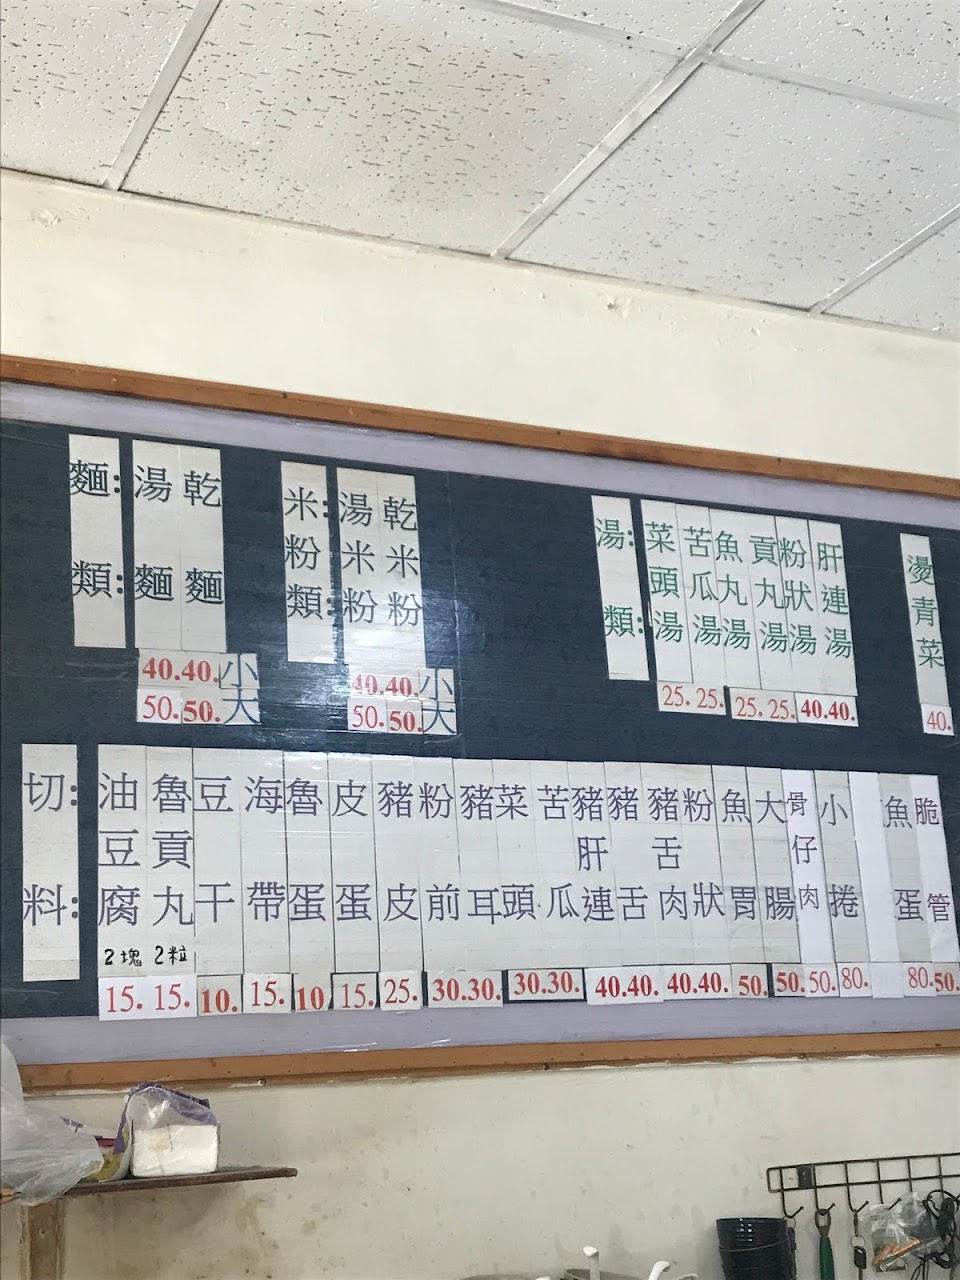 麵類:
湯麵
乾麵
40. 40. 小
50. 50. 大
米粉類:
湯米粉
乾米粉
40. 40. 小
50. 50. 大
湯類:
菜頭湯 25.
苦瓜湯 25.
魚丸湯 25.
貢丸湯 25.
粉狀湯 40.
肝連湯 40.
燙青菜 40.
切料:
油豆腐 2塊 15.
魯貢丸 2粒 15.
豆干 10.
海帶 15.
魯蛋 10
皮蛋 15.
豬皮 25.
粉前 30.
豬耳 30.
菜頭 30.
苦瓜 30.
豬肝連 40.
豬舌 40.
豬舌肉 40.
粉狀 40.
魚胃 50.
大腸 50.
骨仔肉 50.
小捲 80.
魚蛋 80.
脆管 50.